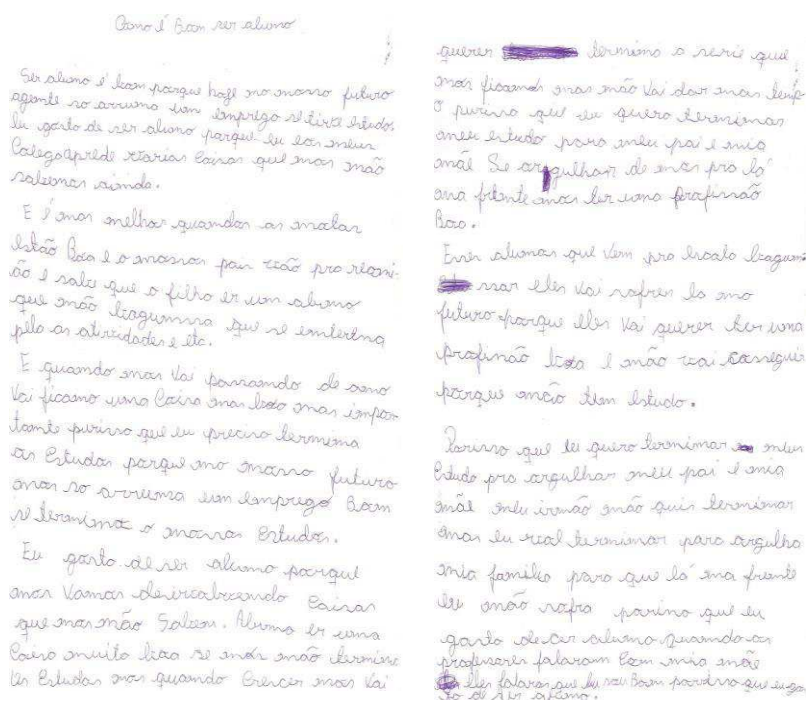 Como é Bom ser aluno
Ser aluno é bom porque hoje no nosso futuro
agente so arruma um emprego se tive estudo.
Eu gosto de ser aluno porque eu eos meus
Colegaaprede varias Coisas que nos não
sabemos ainda.
E é mas melhor quamdos as motas
Estão Boa e o nossos pais vão pra reoni-
ão e sabe que o filho er um aluno
que não bagumsa que se emterna
pelo as atividades e etc.
E quamdo nos Vai passamdo de amo
Vai ficamo uma Coisa mas boa mas impor
tamte purisso que eu preciso termima
os Estudos porque no nosso futuro
nos so arruma um emprego Bom
se termima o nossos Estudos.
Eu gosto de ser alumo porque
nos Vamos
Coisas
que nos não Sabem. Alumo er uma
Coisa muito boa se nós não termine
tes Estudos nos quamdo Crescer nos Vai
querer termimo a serie que
nós ficamos mas não Vai dar mas temp-
o purisso que eu quero termimas
meu estudo para meu pai e mia
mãe Se orgulham de mos pro lá
ma frente mos ter uma profissão
Boa.
Esses alumos que Vem pra Escola bagum
sar eles Vai sofrer la mo
futuro porque eles Vai querer ter uma
profissão boa e não vai conseguir
porque não tem estudo.
Porisso que eu quero termimar meus
Estudo pra orgulhar meu pai e mia
mãe meu irmão não quis termimar
mas eu vou termimar para orgulha
mia familia para que lá ma frente
eu não sofra porisso que eu
gosto de ser alumo Quamdo os
professores falaram Com mia mãe
eles falaras que eu sou Bom porisso que eu gos
to de ser alumo.